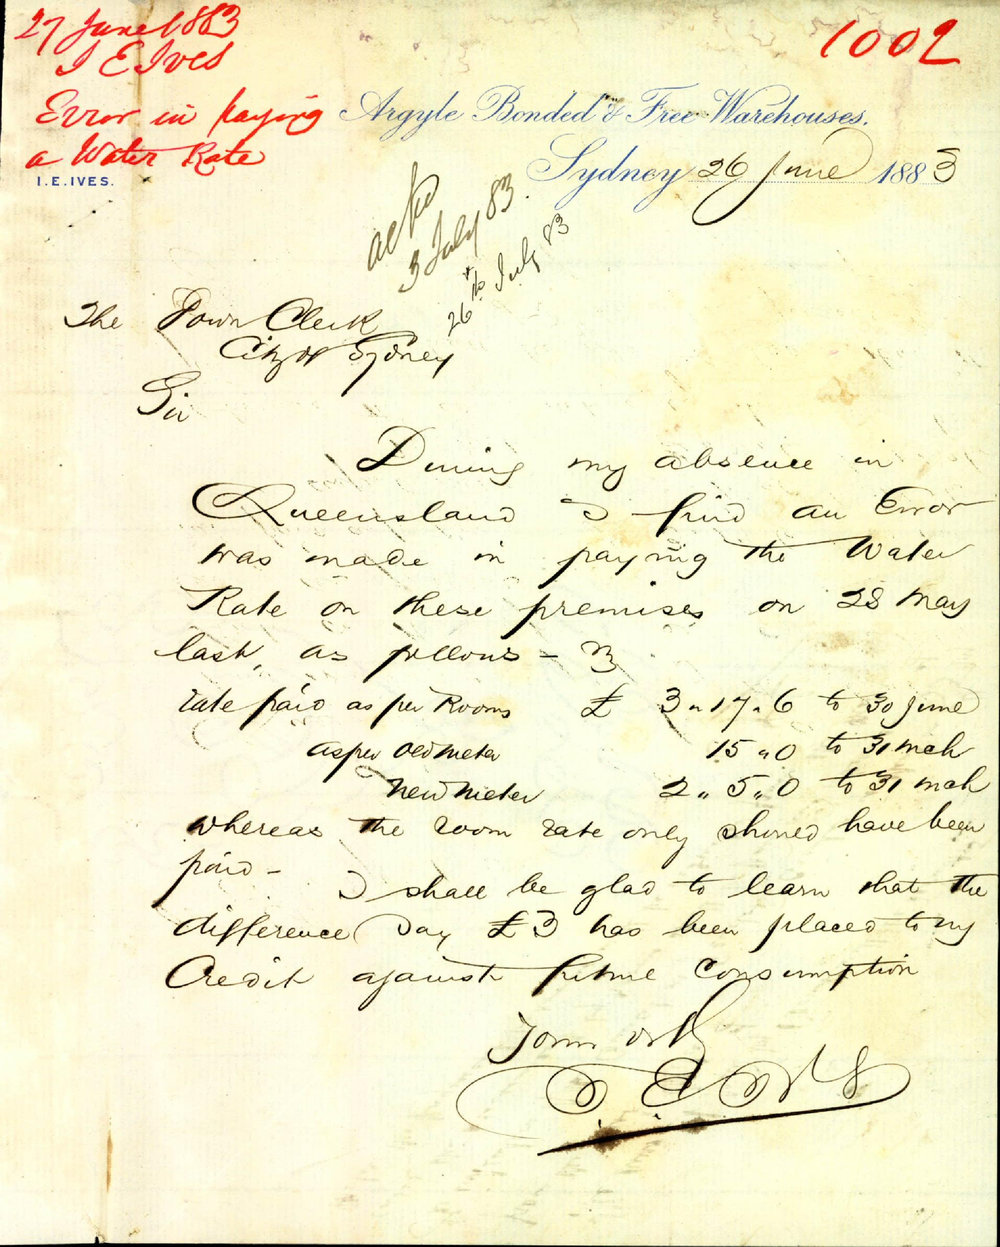 27 June 1883
I E Ives
Error in paying
a Water Rate
1002
Argyle Bonded & Free Warehouses.
I.E.IVES.
Sydney 26 June 1883
3 July 83.
26th July 83
The Town Clerk
City of Sydney
Sir
During my absence in
Queensland I find an Error
was made in paying the Water
Rate on these premises on 28 May
last, as follows -
rate paid as per Rooms £ 3 " 17 " 6 to 30 June
as per old meter 15 " 0 to 31 mch
new meter 2 " 5 " 0 to 31 mch
whereas the room rate only should have been
paid - I shall be glad to learn that the
difference say £3 has been placed to my
Credit against future Consumption
Yours
I. E. Ives